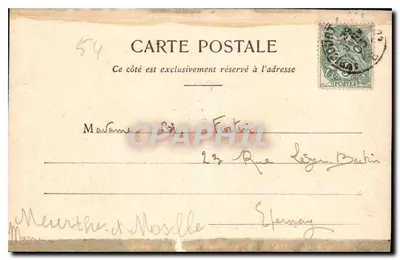 54
CARTE POSTALE
Ce côté est exclusivement réservé à l'adresse
Madame Fortin
CPAPHIL
23 Rue Léger Bertin
Meurthe-et-Moselle
Epernay